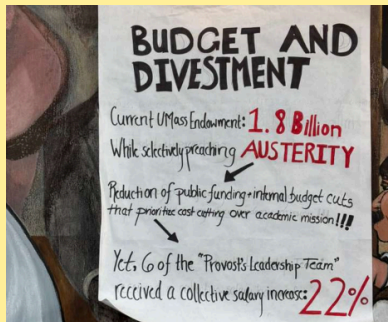 BUDGET AND
DIVESTMENT
Current UMass Endowment: 1.8 Billion
While selectively preaching AUSTERITY
Reduction of public funding + internal budget cuts
that prioritize cost cutting over academic mission!!!
Yet, 6 of the "Provost's Leadership Team"
received a collective salary increase: 22%